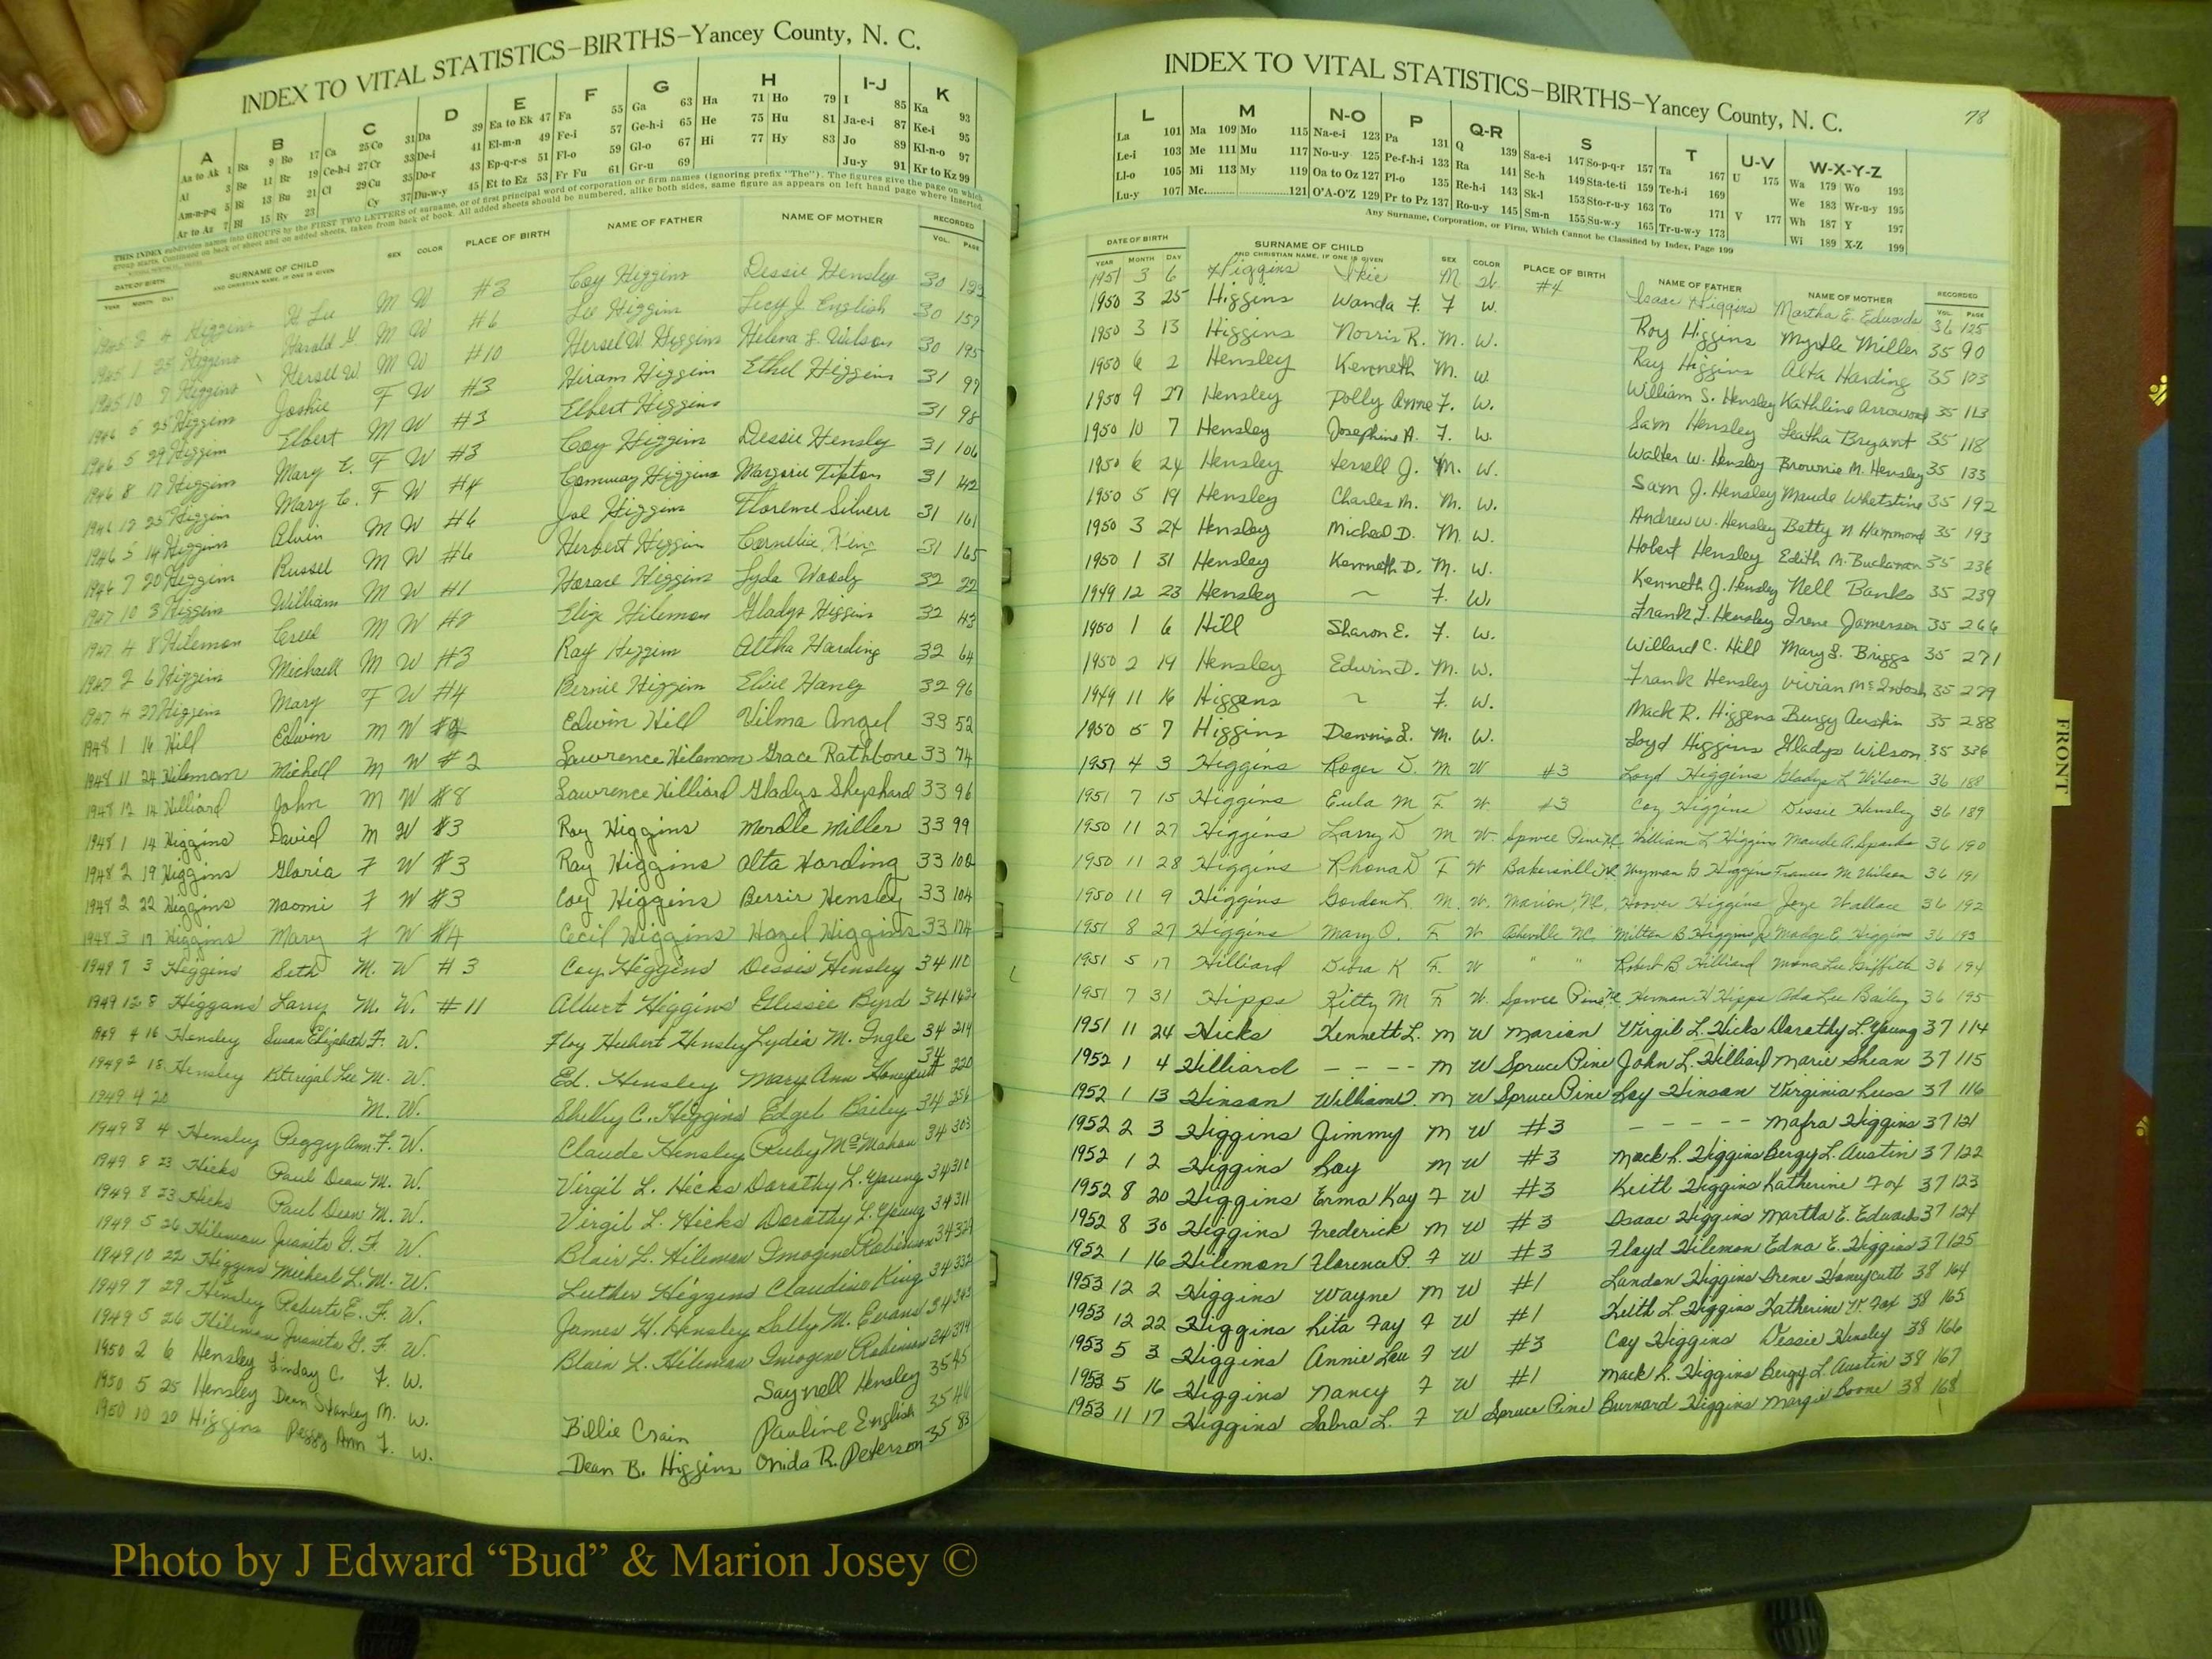 INDEX TO VITAL STATISTICS–BIRTHS–Yancey County, N. C.
A B C D E F G H I-J K
Aa to Ak 1 Ba 9 Bo 17 Ca 25 Co 31 Da 39 Ea to Ek 47 Fa 55 Ga 63 Ha 71 Ho 79 I 85 Ka 93
Al 3 Be 11 Br 19 Ce-h-i 27 Cr 33 De-i 41 El-m-n 49 Fe-i 57 Ge-h-i 65 He 75 Hu 81 Ja-e-i 87 Ke-i 95
Am-n-p-q 5 Bi 13 Bu 21 Cl 29 Cu 35 Do-r 43 Ep-q-r-s 51 Fl-o 59 Gl-o 67 Hi 77 Hy 83 Jo 89 Kl-n-o 97
Ar to Az 7 Bl 15 By 23 Cy 37 Du-w-y 45 Et to Ez 53 Fr Fu 61 Gr-u 69 Ju-y 91 Kr to Kz 99
DATE OF BIRTH SURNAME OF CHILD SEX COLOR PLACE OF BIRTH NAME OF FATHER NAME OF MOTHER RECORDED
YEAR MONTH DAY AND CHRISTIAN NAME, IF ONE IS GIVEN VOL. PAGE
Higgins H Lee M W #3 Coy Higgins Dessie Hensley 30
Higgins Harald G M W #6 Lee Higgins Lucy J. English 30 159
Higgins Hersel W. M W #10 Hersel W. Higgins Helena S. Wilson 30 195
Higgins Joshie F W #3 Hiram Higgins Ethel Higgins 31 97
Higgins Elbert M W #3 Elbert Higgins 31 98
1946 8 17 Higgins Mary E. F W #3 Coy Higgins Dessie Hensley 31 106
1946 12 25 Higgins Mary C. F W #4 Conway Higgins Margarie Tipton 31 142
1946 5 14 Higgins Alvin M W #6 Joe Higgins Florence Silvers 31 161
1946 7 20 Higgins Russel M W #6 Herbert Higgin Cornelia King 31 165
1947 10 3 Higgins William M W #1 Horace Higgins Lyda Woody 32 22
1947 4 8 Hileman Creed M W Elize Hileman Gladys Higgins 32 43
1947 2 6 Higgins Michaell M W #3 Ray Higgins Altha Harding 32 64
1947 4 27 Higgins Mary F W #4 Bernie Higgins Elsie Haney 32 96
1948 1 16 Hill Edwin M W Edwin Hill Vilma Angel 33 52
1948 11 24 Hileman Michell M W #2 Lawrence Hileman Grace Rathbone 33 74
1948 12 14 Hilliard John M W #8 Lawrence Hilliard Gladys Shephard 33 96
1948 1 14 Higgins David M W #3 Roy Higgins Merdle Miller 33 99
1948 2 19 Higgins Gloria F W #3 Ray Higgins Alta Harding 33 100
1948 2 22 Higgins Naomi F W #3 Coy Higgins Bessie Hensley 33 104
1948 3 17 Higgins Mary F W #4 Cecil Higgins Hazel Higgins 33 174
1949 7 3 Higgins Seth M. W #3 Coy Higgins Dessie Hensley 34 110
1949 12 8 Higgans Larry M. W. #11 Albert Higgins Glissie Byrd 34
1949 4 16 Hensley Susan Elizabeth F. W. Floy Hubert Hensley Lydia M. Ingle 34 214
1949 2 18 Hensley Lee M. W. Ed. Hensley Mary Ann Honeycutt 34 220
1949 4 20 M. W. Shelby C. Higgins Edgel Bailey 34 256
1949 8 4 Hensley Peggy Ann F. W. Claude Hensley Ruby McMahan 34 303
1949 8 23 Hicks Paul Dean M. W. Virgil L. Hicks Dorothy L. Young 34 310
1949 8 23 Hicks Paul Dean M. W. Virgil L. Hicks Dorothy L. Young 34 311
1949 5 26 Hileman Juanita G. F. W. Blair L. Hileman Imogene Robinson 34
1949 10 22 Higgins Micheal L. M. W. Luther Higgins Claudine King 34 332
1949 7 29 Hensley Roberta E. F. W. James H. Hensley Sally M. Evans 34
1949 5 26 Hileman Juanita G. F. W. Blair L. Hileman Imogene Robinson 34 374
1950 2 6 Hensley Linday C. F. W. Saynell Hensley 35 45
1950 5 25 Hensley Dean Stanley M. W. Billie Crain Pauline English 35 46
1950 10 20 Higgins Peggy Ann F. W. Dean B. Higgins Onida R. Peterson 35 83
INDEX TO VITAL STATISTICS–BIRTHS–Yancey County, N. C.
78
L M N-O P Q-R S T U-V W-X-Y-Z
La 101 Ma 109 Mo 115 Na-e-i 123 Pa 131 Q 139 Sa-e-i 147 So-p-q-r 157 Ta 167 U 175 Wa 179 Wo 193
Le-i 103 Me 111 Mu 117 No-u-y 125 Pe-f-h-i 133 Ra 141 Sc-h 149 Sta-te-ti 159 Te-h-i 169 We 183 Wr-u-y 195
Ll-o 105 Mi 113 My 119 Oa to Oz 127 Pl-o 135 Re-h-i 143 Sk-l 153 Sto-r-u-y 163 To 171 V 177 Wh 187 Y 197
Lu-y 107 Mc 121 O'A-O'Z 129 Pr to Pz 137 Ro-u-y 145 Sm-n 155 Su-w-y 165 Tr-u-w-y 173 Wi 189 X-Z 199
Any Surname, Corporation, or Firm, Which Cannot be Classified by Index, Page 199
DATE OF BIRTH SURNAME OF CHILD SEX COLOR PLACE OF BIRTH NAME OF FATHER NAME OF MOTHER RECORDED
YEAR MONTH DAY AND CHRISTIAN NAME, IF ONE IS GIVEN VOL. PAGE
1951 3 6 Higgins Ikie M. W. #4 Isaac Higgins Martha E. Edwards 36 125
1950 3 25 Higgins Wanda F. F W. Roy Higgins Myrtle Miller 35 90
1950 3 13 Higgins Norris R. M. W. Ray Higgins Alta Harding 35 103
1950 6 2 Hensley Kenneth M. W William S. Hensley Kathline Arrowood 35 113
1950 9 27 Hensley Polly Anne F. W. Sam Hensley Leatha Bryant 35 118
1950 10 7 Hensley Josephine A. F. W. Walter W. Hensley Brownie M. Hensley 35 133
1950 6 24 Hensley Terrell J. M. W. Sam J. Hensley Maude Whetstine 35 192
1950 5 19 Hensley Charles M. M. W. Andrew W. Hensley Betty N Hammond 35 193
1950 3 24 Hensley Micheal D. M. W. Hobert Hensley Edith M. Buchanan 35 236
1950 1 31 Hensley Kenneth D. M. W. Kenneth J. Hensley Nell Banks 35 239
1949 12 23 Hensley ~ F. W. Frank T. Hensley Irene Jamerson 35 266
1950 1 6 Hill Sharon E. F. W. Willard C. Hill Mary S. Briggs 35 271
1950 2 19 Hensley Edwin D. M. W. Frank Hensley Vivian McIntosh 35 279
1949 11 16 Higgens ~ F. W. Mack R. Higgens Burgy Austin 35 288
1950 5 7 Higgins Dennis L. M. W. Loyd Higgins Gladys Wilson 35 336
1951 4 3 Higgins Roger D. M W #3 Loyd Higgins Gladys L Wilson 36 188
1951 7 15 Higgins Eula M F. W. #3 Coy Higgins Dessie Hensley 36 189
1950 11 27 Higgins Larry D M W. Spruce Pine NC William L Higgins Maude A. Sparks 36 190
1950 11 28 Higgins Rhona D F W Bakersville NC Wyman G Higgins Frances M Wilson 36 191
1950 11 9 Higgins Gordon L. M. W. Marion, NC. Hoover Higgins Joye Wallace 36 192
1951 8 27 Higgins Mary O. F. W Asheville NC Milton B Higgins Jr Madge E Higgins 36 193
1951 5 17 Hilliard Debra K F. W " " Robert B Hilliard Mona Lee Griffith 36 194
1951 7 31 Hipps Kitty M F W. Spruce Pine NC Herman H Hipps Ada Lee Bailey 36 195
1951 11 24 Hicks Kenneth L. M W Marion Virgil L. Hicks Dorothy L. Young 37 114
1952 1 4 Hilliard – – – – M W Spruce Pine John L. Hilliard Marie Shean 37 115
1952 1 13 Hinson William D. M W Spruce Pine Roy Hinson Virginia Russ 37 116
1952 2 3 Higgins Jimmy M W #3 – – – – – Mafra Higgins 37 121
1952 1 2 Higgins Roy M W #3 Mack R. Higgins Bergy L. Austin 37 122
1952 8 20 Higgins Erma Kay F W #3 Keith Higgins Katherine Fox 37 123
1952 8 30 Higgins Frederick M W #3 Isaac Higgins Martha E. Edwards 37 124
1952 1 16 Hileman Florence P. F W #3 Floyd Hileman Edna E. Higgins 37 125
1953 12 2 Higgins Wayne M W #1 Landon Higgins Irene Honeycutt 38 164
1953 12 22 Higgins Lita Fay F W #1 Keith L. Higgins Katherine V. Fox 38 165
1953 5 3 Higgins Annie Lou F W #3 Coy Higgins Dessie Hensley 38 166
1953 5 16 Higgins Nancy F W #1 Mack R. Higgins Bergy L. Austin 38 167
1953 11 17 Higgins Sabra L. F W Spruce Pine Burnard Higgins Margie Boone 38 168
FRONT
Photo by J Edward “Bud” & Marion Josey ©